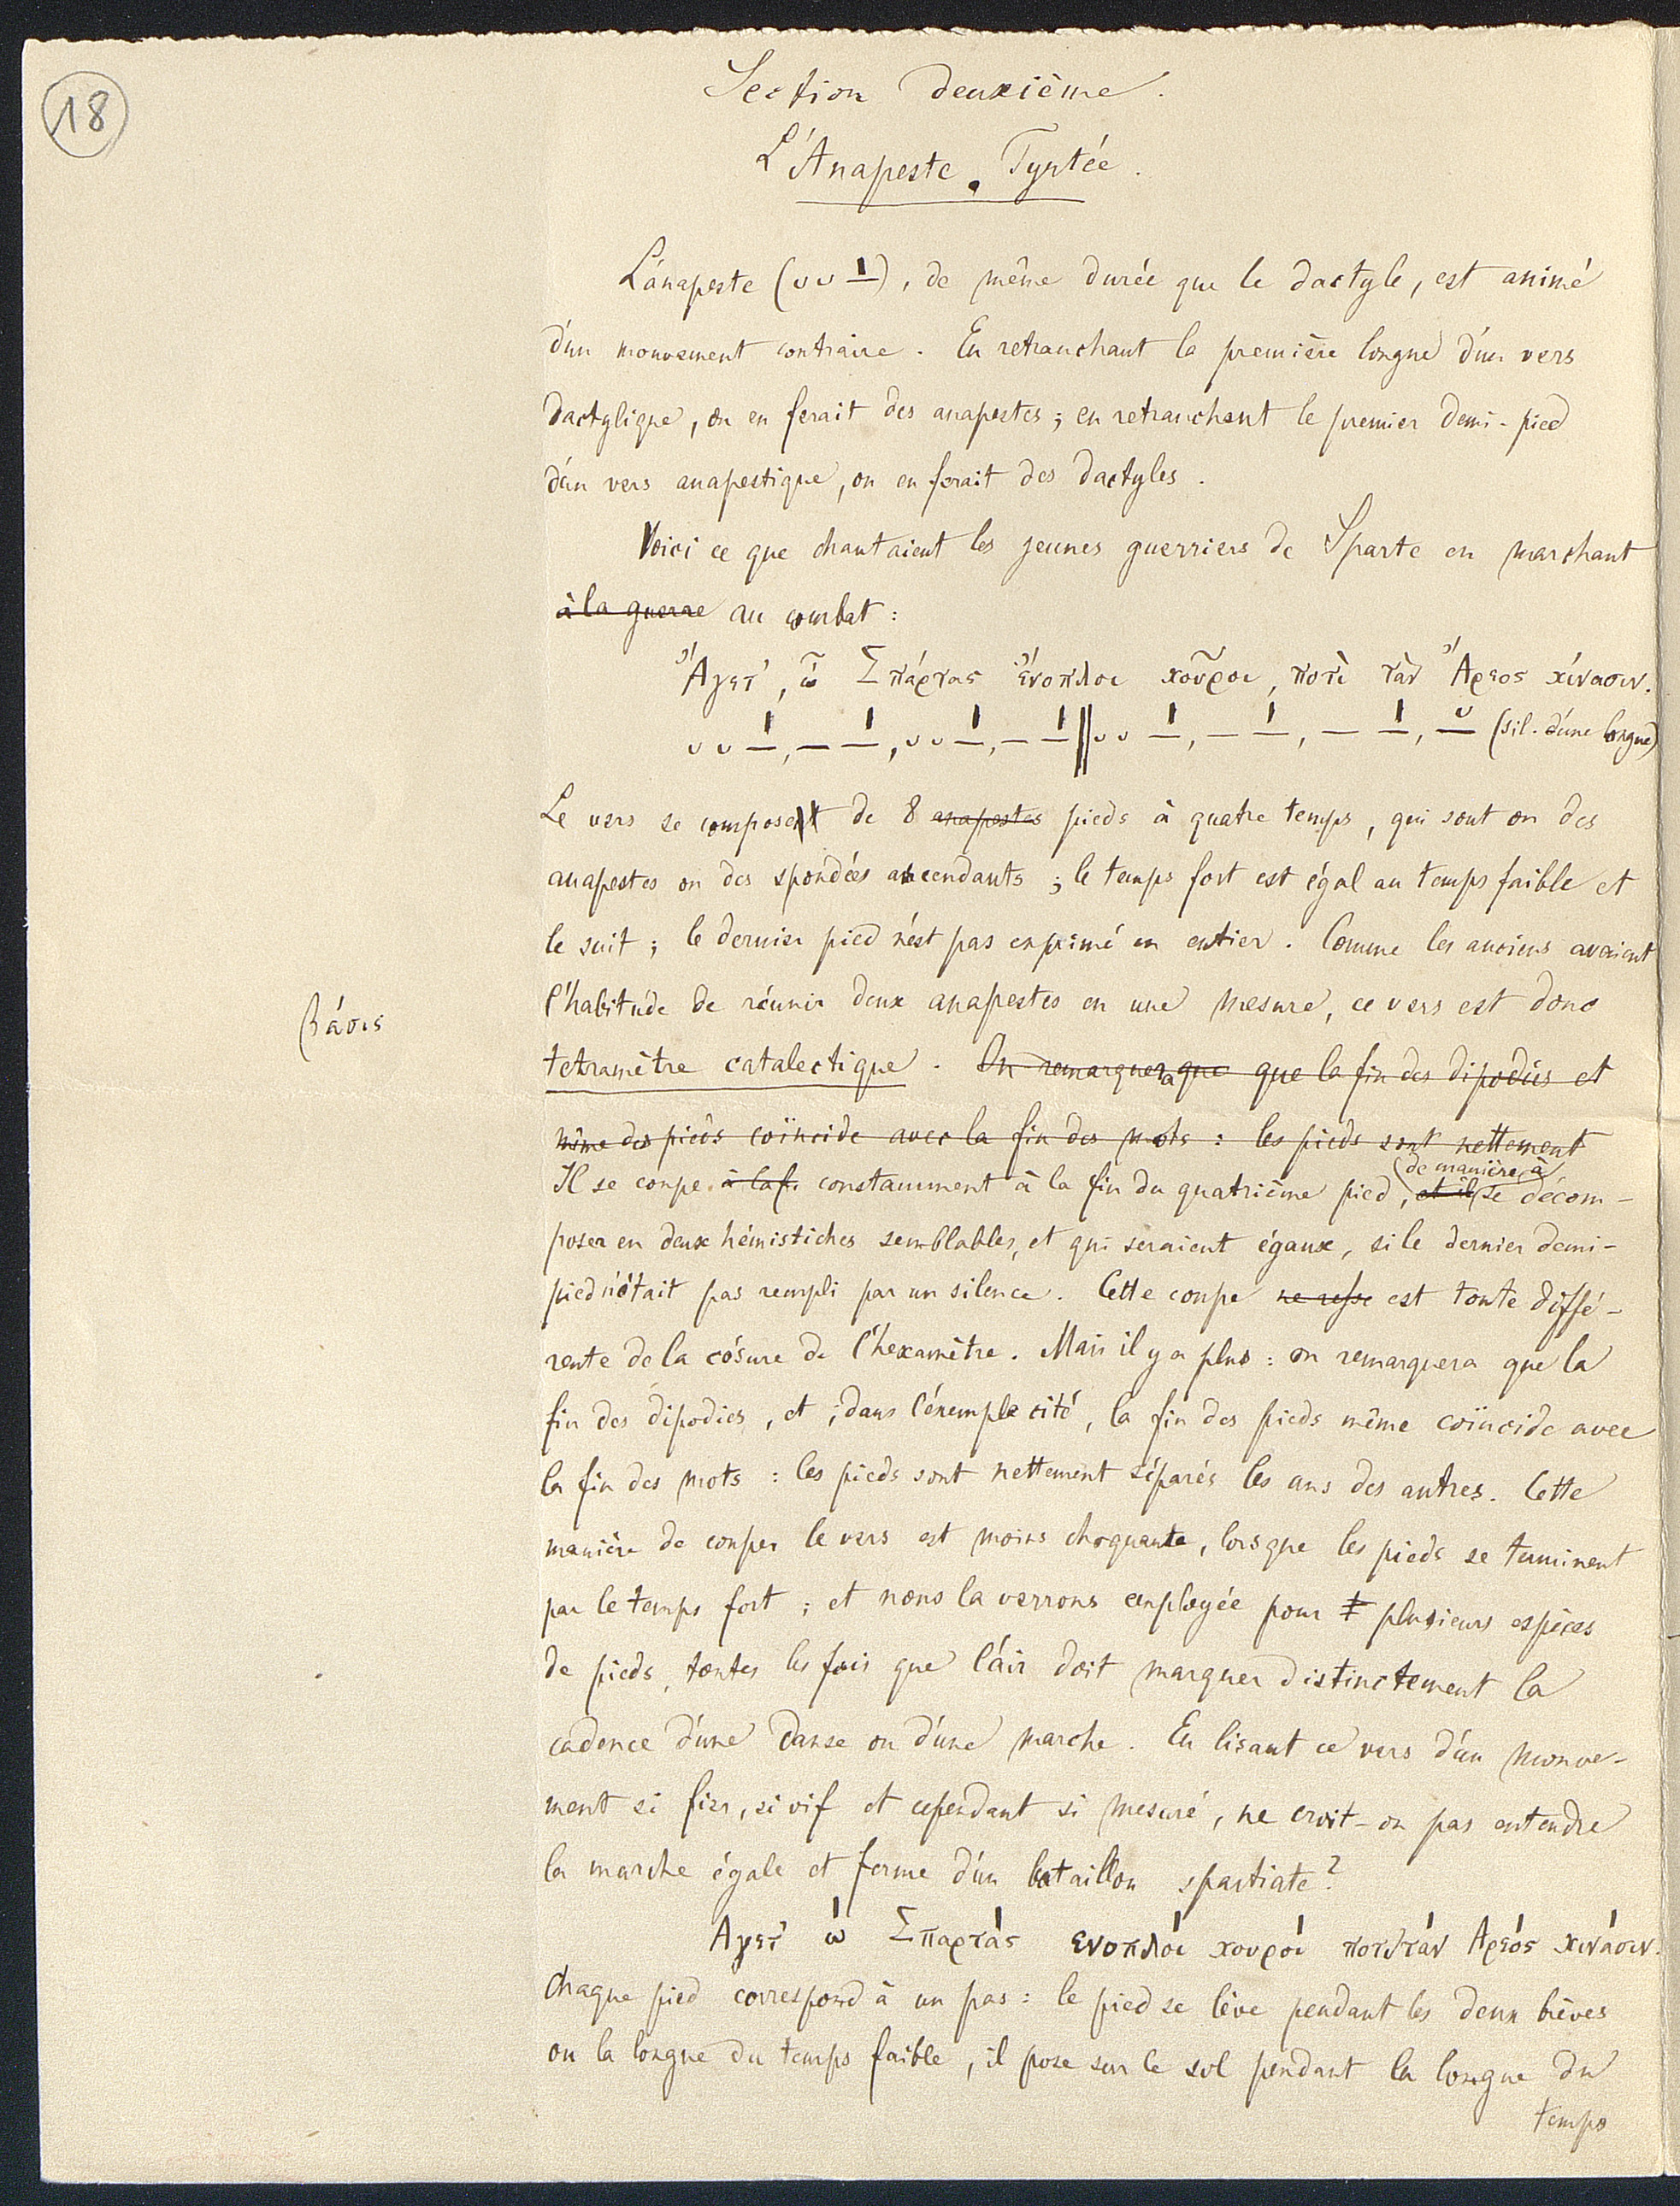 18
Section deuxième.
L'Anapeste. Tyrtée.
L'anapeste (υυ –́), de même durée que le dactyle, est animé
d'un mouvement contraire. En retranchant la première longue d'un vers
dactylique, on en ferait des anapestes ; en retranchant le premier demi-pied
d'un vers anapestique, on en ferait des dactyles.
Voici ce que chantaient les jeunes guerriers de Sparte en marchant
à la guerre au combat :
Ἄγετ', ὦ Σπάρτας ἔνοπλοι κοῦροι, ποτὶ τὰν Ἄρεος κίνασιν.
υυ –́, – –́, υυ –́, – –́ || υυ –́, – –́, – –́, –̆ (sil. d'une longue)
Le vers se compose de 8 anapestes pieds à quatre temps, qui sont ou des
anapestes ou des spondées ascendants ; le temps fort est égal au temps faible et
le suit ; le dernier pied n'est pas exprimé en entier. Comme les anciens avaient
l'habitude de réunir deux anapestes en une mesure, ce vers est donc
βάσις
tetramètre catalectique. On remarquera que que la fin des dipodies et
même des pieds coïncide avec la fin des mots : les pieds sont nettement
de manière à
Il se coupe à la f. constamment à la fin du quatrième pied, et il se décom-
poser en deux hémistiches semblables, et qui seraient égaux, si le dernier demi-
pied n'était pas rempli par un silence. Cette coupe est toute diffé-
rente de la césure de l'hexamètre. Mais il y a plus : on remarquera que la
fin des dipodies, et, dans l'exemple cité, la fin des pieds même coïncide avec
la fin des mots : les pieds sont nettement séparés les uns des autres. Cette
manière de couper le vers est moins choquante, lorsque les pieds se terminent
par le temps fort ; et nous la verrons employée pour plusieurs espèces
de pieds, toutes les fois que l'air doit marquer distinctement la
cadence d'une danse ou d'une marche. En lisant ce vers d'un mouve-
ment si fier, si vif et cependant si mesuré, ne croit-on pas entendre
la marche égale et ferme d'un bataillon spartiate ?
Αγετ' ώ Σπαρτάς ενοπλοί κουροί ποτιτάν Αρεός κινάσιν.
Chaque pied correspond à un pas : le pied se lève pendant les deux brèves
ou la longue du temps faible, il pose sur le sol pendant la longue du
temps